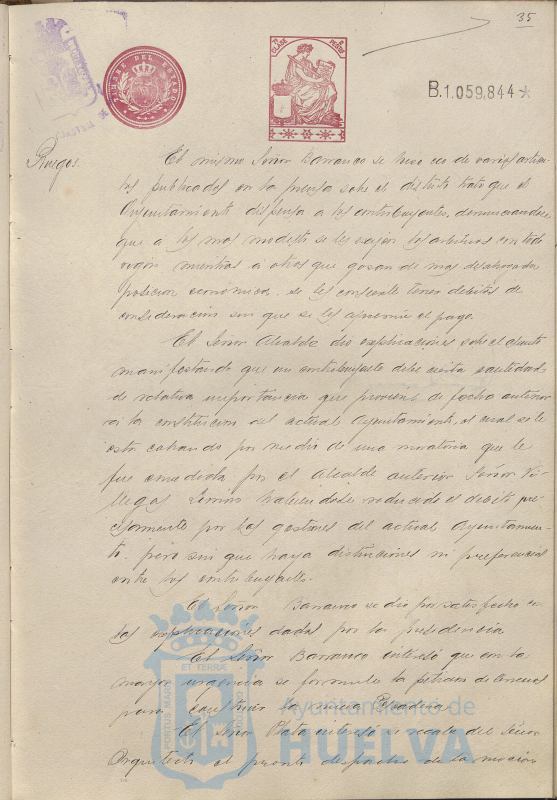 35
TIMBRE DEL ESTADO
7ª CLASE
PESETAS
B.1.059,844*
Ruegos.
El mismo Señor Barranco se hizo eco de varios artícu-
los publicados en la prensa sobre el distinto trato que el
Ayuntamiento dispensa a los contribuyentes, denunciandose
que a los mas modestos se les exijen los arbitrios con todo
rigor mientras a otros que gozan de mas desahogada
posición económica se les consiente tener debitos de
consideración sin que se les apremie el pago.
El Señor Alcalde dio explicaciones sobre el asunto
manifestando que un contribuyente debe cantidad
de relativa importancia que proviene de fecha anterior
a la constitución del actual Ayuntamiento, el cual se le
está cobrando por medio de una moratoria que le
fue concedida por el Alcalde anterior Señor Vi-
llegas habiendose reducido el debito pre-
cisamente por las gestiones del actual Ayuntamien-
to, pero sin que haya distinciones ni preferencias
entre los contribuyentes.
El Señor Barranco se dio por satisfecho con
las explicaciones dadas por la presidencia
El Señor Barranco interesó que con la
mayor urgencia se formule la petición de
para construir la nueva
El Señor Plata interesó se recabe del Señor
Arquitecto el pronto despacho de la moción
PORTUS MARIS ET TERRAE
Ayuntamiento de
HUELVA